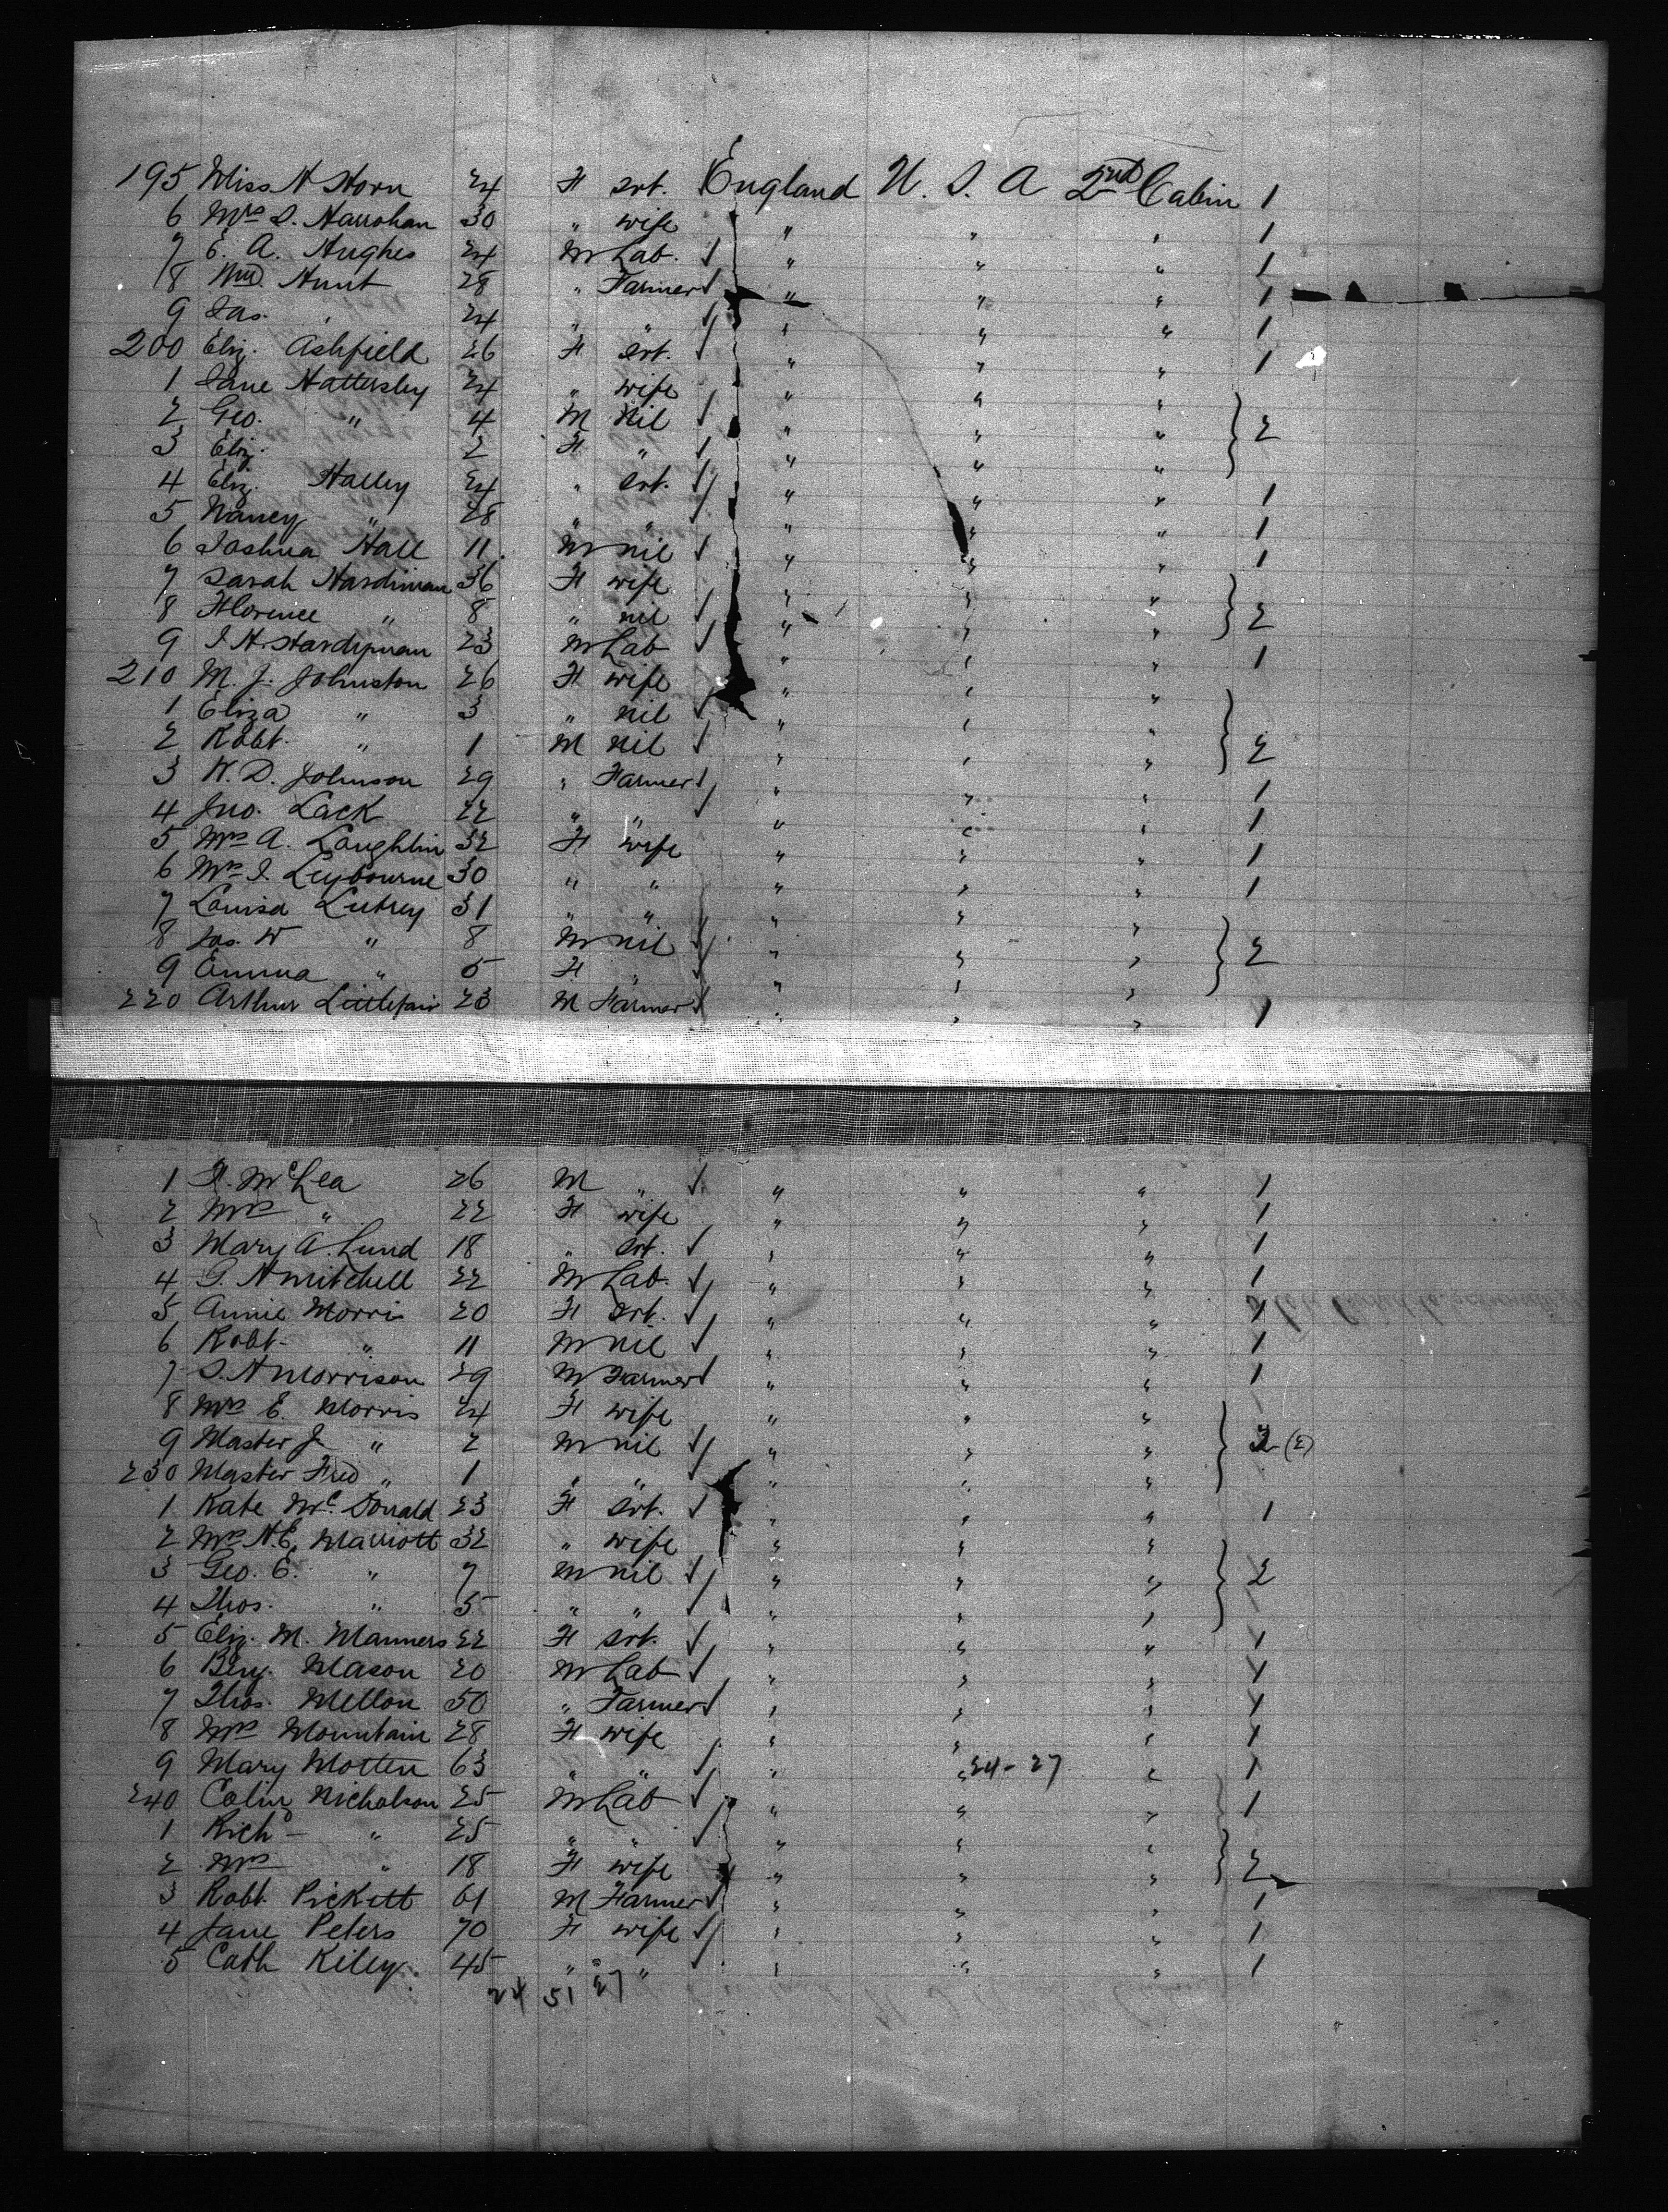 195 Miss H Horn 24 F Srt. England U. S. A 2nd Cabin 1
6 Mrs S. Hanrahan 30 " wife " " " 1
7 E. A. Hughes 24 M Lab. " " " 1
8 Wm. Hunt 28 " Farmer " " " 1
9 Jas. " 24 " " " " " 1
200 Eliz. Ashfield 26 F Srt. " " " 1
1 Jane Hattersley 24 " wife " " "
2 Geo. " 4 M Nil " " " 2
3 Eliz. 2 F " " " "
4 Eliz. Halley 24 " Srt. " " " 1
5 Nancy " 28 " " " " " 1
6 Joshua Hall 11 M nil " " " 1
7 Sarah Hardiman 36 F wife " " "
8 Florence " 8 " nil " " " 2
9 J. H. Hardyman 23 M Lab " " " 1
210 M. J. Johnston 26 F wife " " "
1 Eliza " 3 " nil " " "
2 Robt. " 1 M nil " " " 2
3 W. D. Johnson 29 " Farmer " " " 1
4 Jno. Lack 22 " " " " " 1
5 Mrs A. Loughlin 32 F wife " " " 1
6 Mrs J. Leybourne 30 " " " " " 1
7 Louisa 31 " " " " "
8 Jas. W " 8 M nil " " " 2
9 Emma " 5 F " " " "
220 Arthur Littlefair 23 M Farmer " " " 1
1 McLea 26 M " " " " 1
2 Mrs " 22 F wife " " " 1
3 Mary A. Lund 18 " Srt. " " " 1
4 G. H Mitchell 22 M Lab. " " " 1
5 Annie Morris 20 F Srt. " " " 1
6 Robt. " 11 M nil " " " 1
7 S. H Morrison 29 M Farmer " " " 1
8 Mrs E. Morris 24 F wife " " "
9 Master J. " 2 M nil " " " 2 (2)
230 Master Fred " 1 " " " " "
1 Kate McDonald 23 F Srt. " " " 1
2 Mrs H. E. Marriott 32 " wife " " "
3 Geo. E. " 7 M nil " " " 2
4 Thos. " 5 " " " " "
5 Eliz. M. Manners 22 F Srt. " " " 1
6 Benj. Mason 20 M Lab " " " 1
7 Thos. Mellon 50 " Farmer " " " 1
8 Mrs Mountain 28 F wife " " " 1
9 Mary Motten 63 " " " " 24-27 " 1
240 Colin Nicholson 25 M Lab " " " 1
1 Richd " 25 " " " " "
2 Mrs " 18 F wife " " " 2
3 Robt. Pickett 61 M Farmer " " " 1
4 Jane Peters 70 F wife " " " 1
5 Cath Kiley 45 " " " " " 1
24 51 27